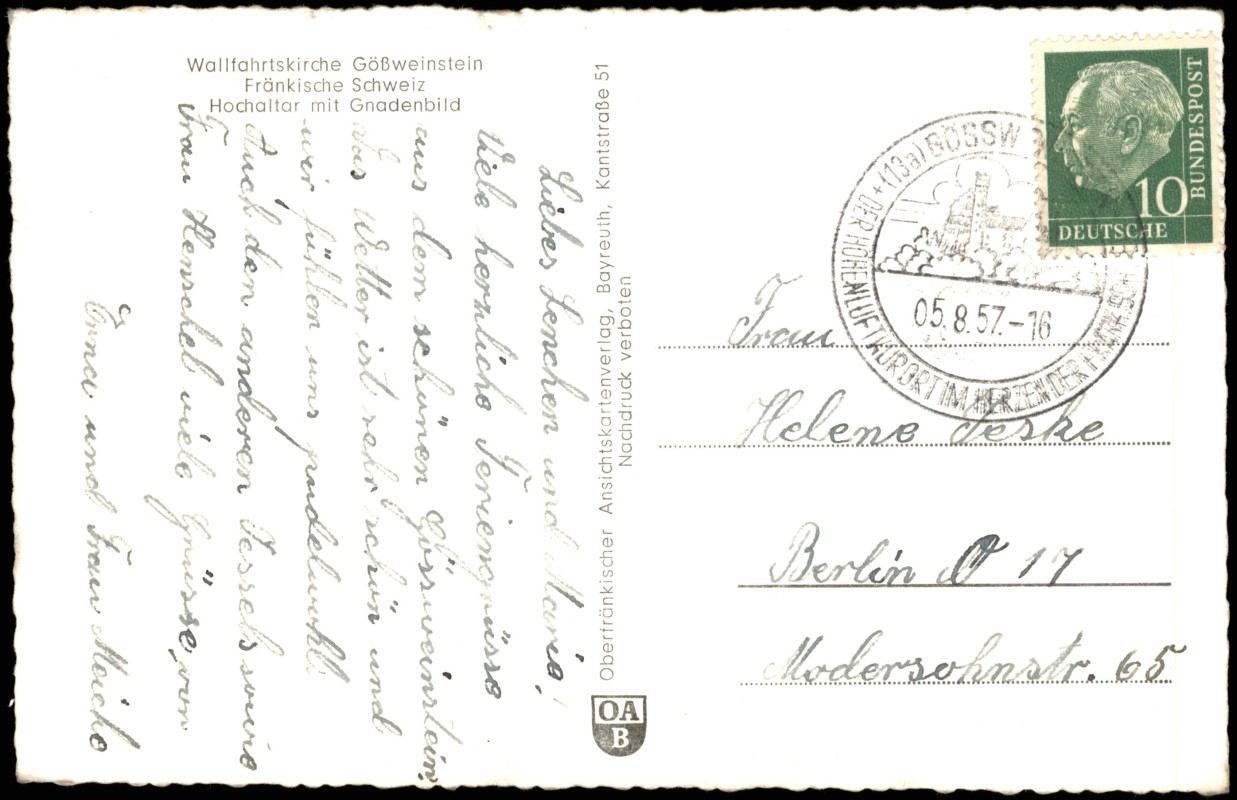 Wallfahrtskirche Gößweinstein
Fränkische Schweiz
Hochaltar mit Gnadenbild
Liebes Lenchen und Maria!
Viele herzliche Feriengrüsse
aus dem schönen Gössweinstein.
Das Wetter ist sehr schön und
wir fühlen uns pudelwohl.
Auch den anderen sowie
Frau Henschel viele Grüsse, von
Erna und Frau
Oberfränkischer Ansichtskartenverlag, Bayreuth, Kantstraße 51
Nachdruck verboten
OA
B
BUNDESPOST
10
DEUTSCHE
(13a) GÖSSW
DER HÖHENLUFTKURORT IM HERZEN DER
05.8.57.-16
Frau
Helene Jeske
Berlin O 17
Modersohnstr. 65